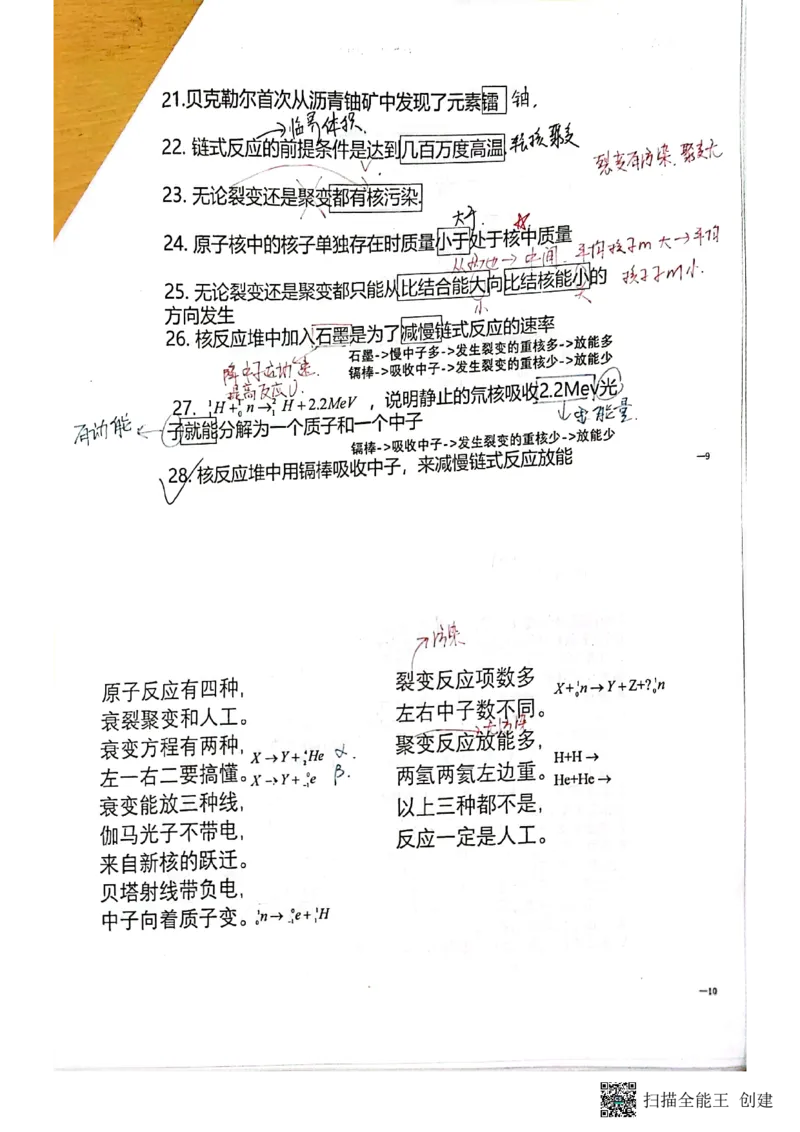 21.贝克勒尔首次从沥青铀矿中发现了元素镭 铀.
→临界体积.
22. 链式反应的前提条件是达到几百万度高温. 轻核聚变
裂变有污染.聚变无
23. 无论裂变还是聚变都有核污染.
大于.
24. 原子核中的核子单独存在时质量小于处于核中质量
→中间. 平均核子m 大→平均
25. 无论裂变还是聚变都只能从比结合能大向比结核能小的 核子m小.
小 大
方向发生
26. 核反应堆中加入石墨是为了减慢链式反应的速率
石墨->慢中子多->发生裂变的重核多->放能多
镉棒->吸收中子->发生裂变的重核少->放能少
降中子速.
提高反应
27. ¹₁H+¹₀n→²₁H+2.2MeV ，说明静止的氘核吸收2.2MeV光
↓ 能量.
有动能 ← 子就能分解为一个质子和一个中子
镉棒->吸收中子->发生裂变的重核少->放能少
28. 核反应堆中用镉棒吸收中子，来减慢链式反应放能
—9
→污染
原子反应有四种，
衰裂聚变和人工。
衰变方程有两种，X→Y+⁴₂He α.
左一右二要搞懂。X→Y+⁰₋₁e β.
衰变能放三种线，
伽马光子不带电，
来自新核的跃迁。
贝塔射线带负电，
中子向着质子变。¹₀n→⁰₋₁e+¹₁H
裂变反应项数多 X+¹₀n→Y+Z+?¹₀n
左右中子数不同。
→无污染
聚变反应放能多，
H+H→
两氢两氦左边重。He+He→
以上三种都不是，
反应一定是人工。
—10
扫描全能王 创建